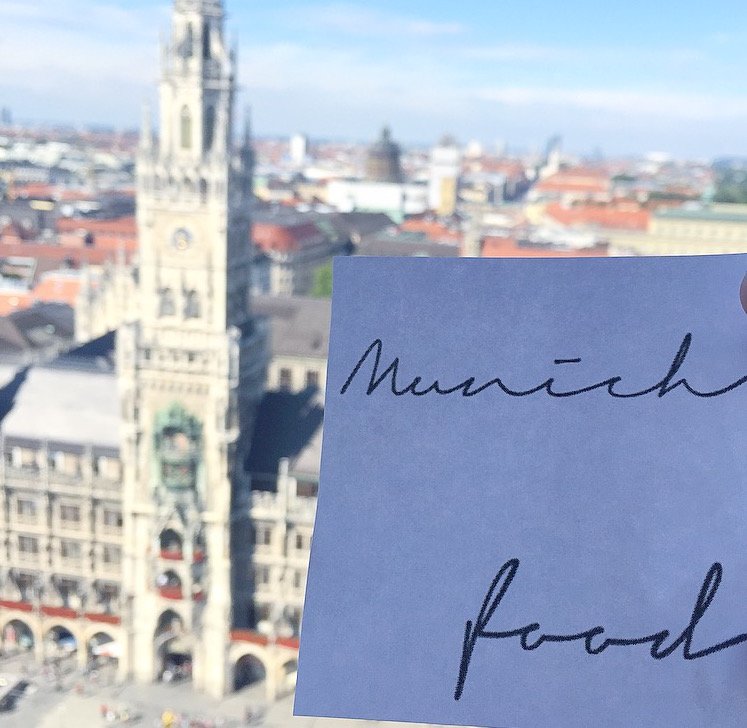 Munich
food